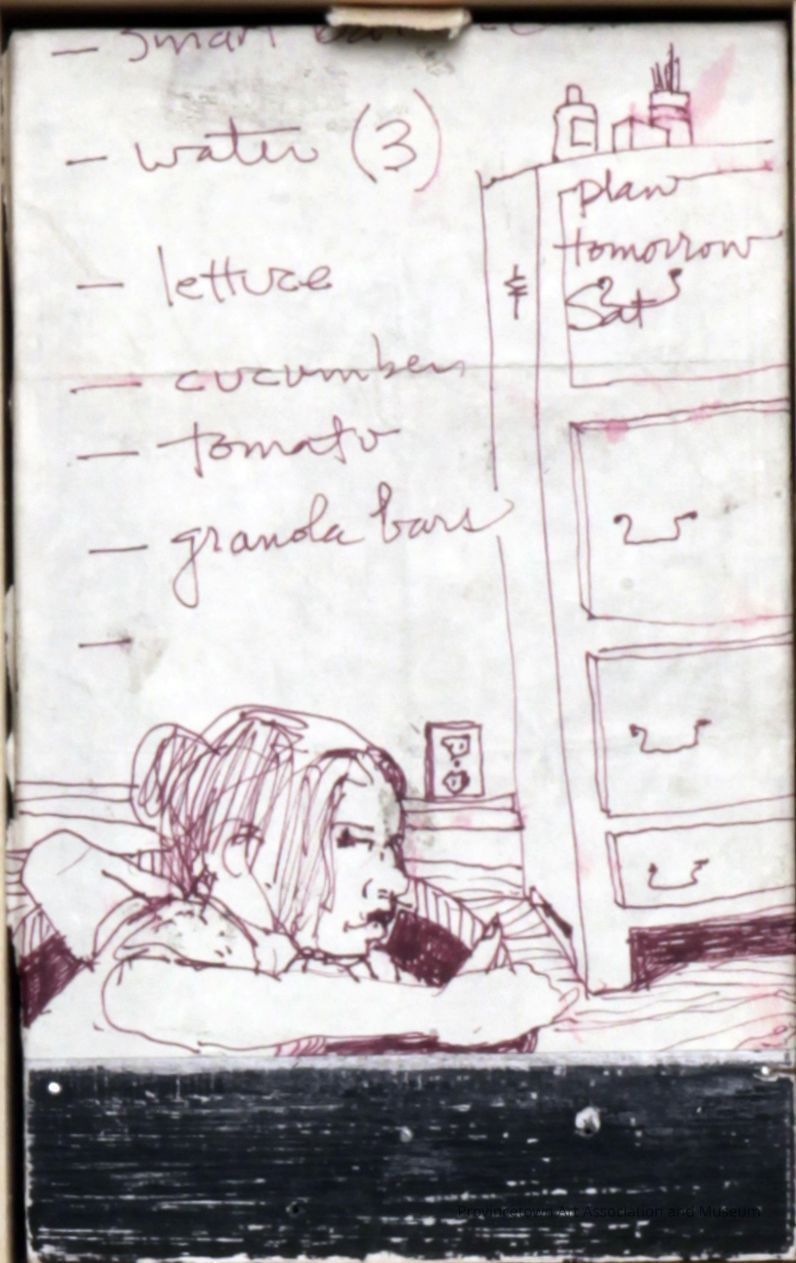 — Smart
— water (3)
— lettuce
— cucumbers
— tomato
— granola bars
—
plan
tomorrow
Sat
Provincetown Art Association and Museum